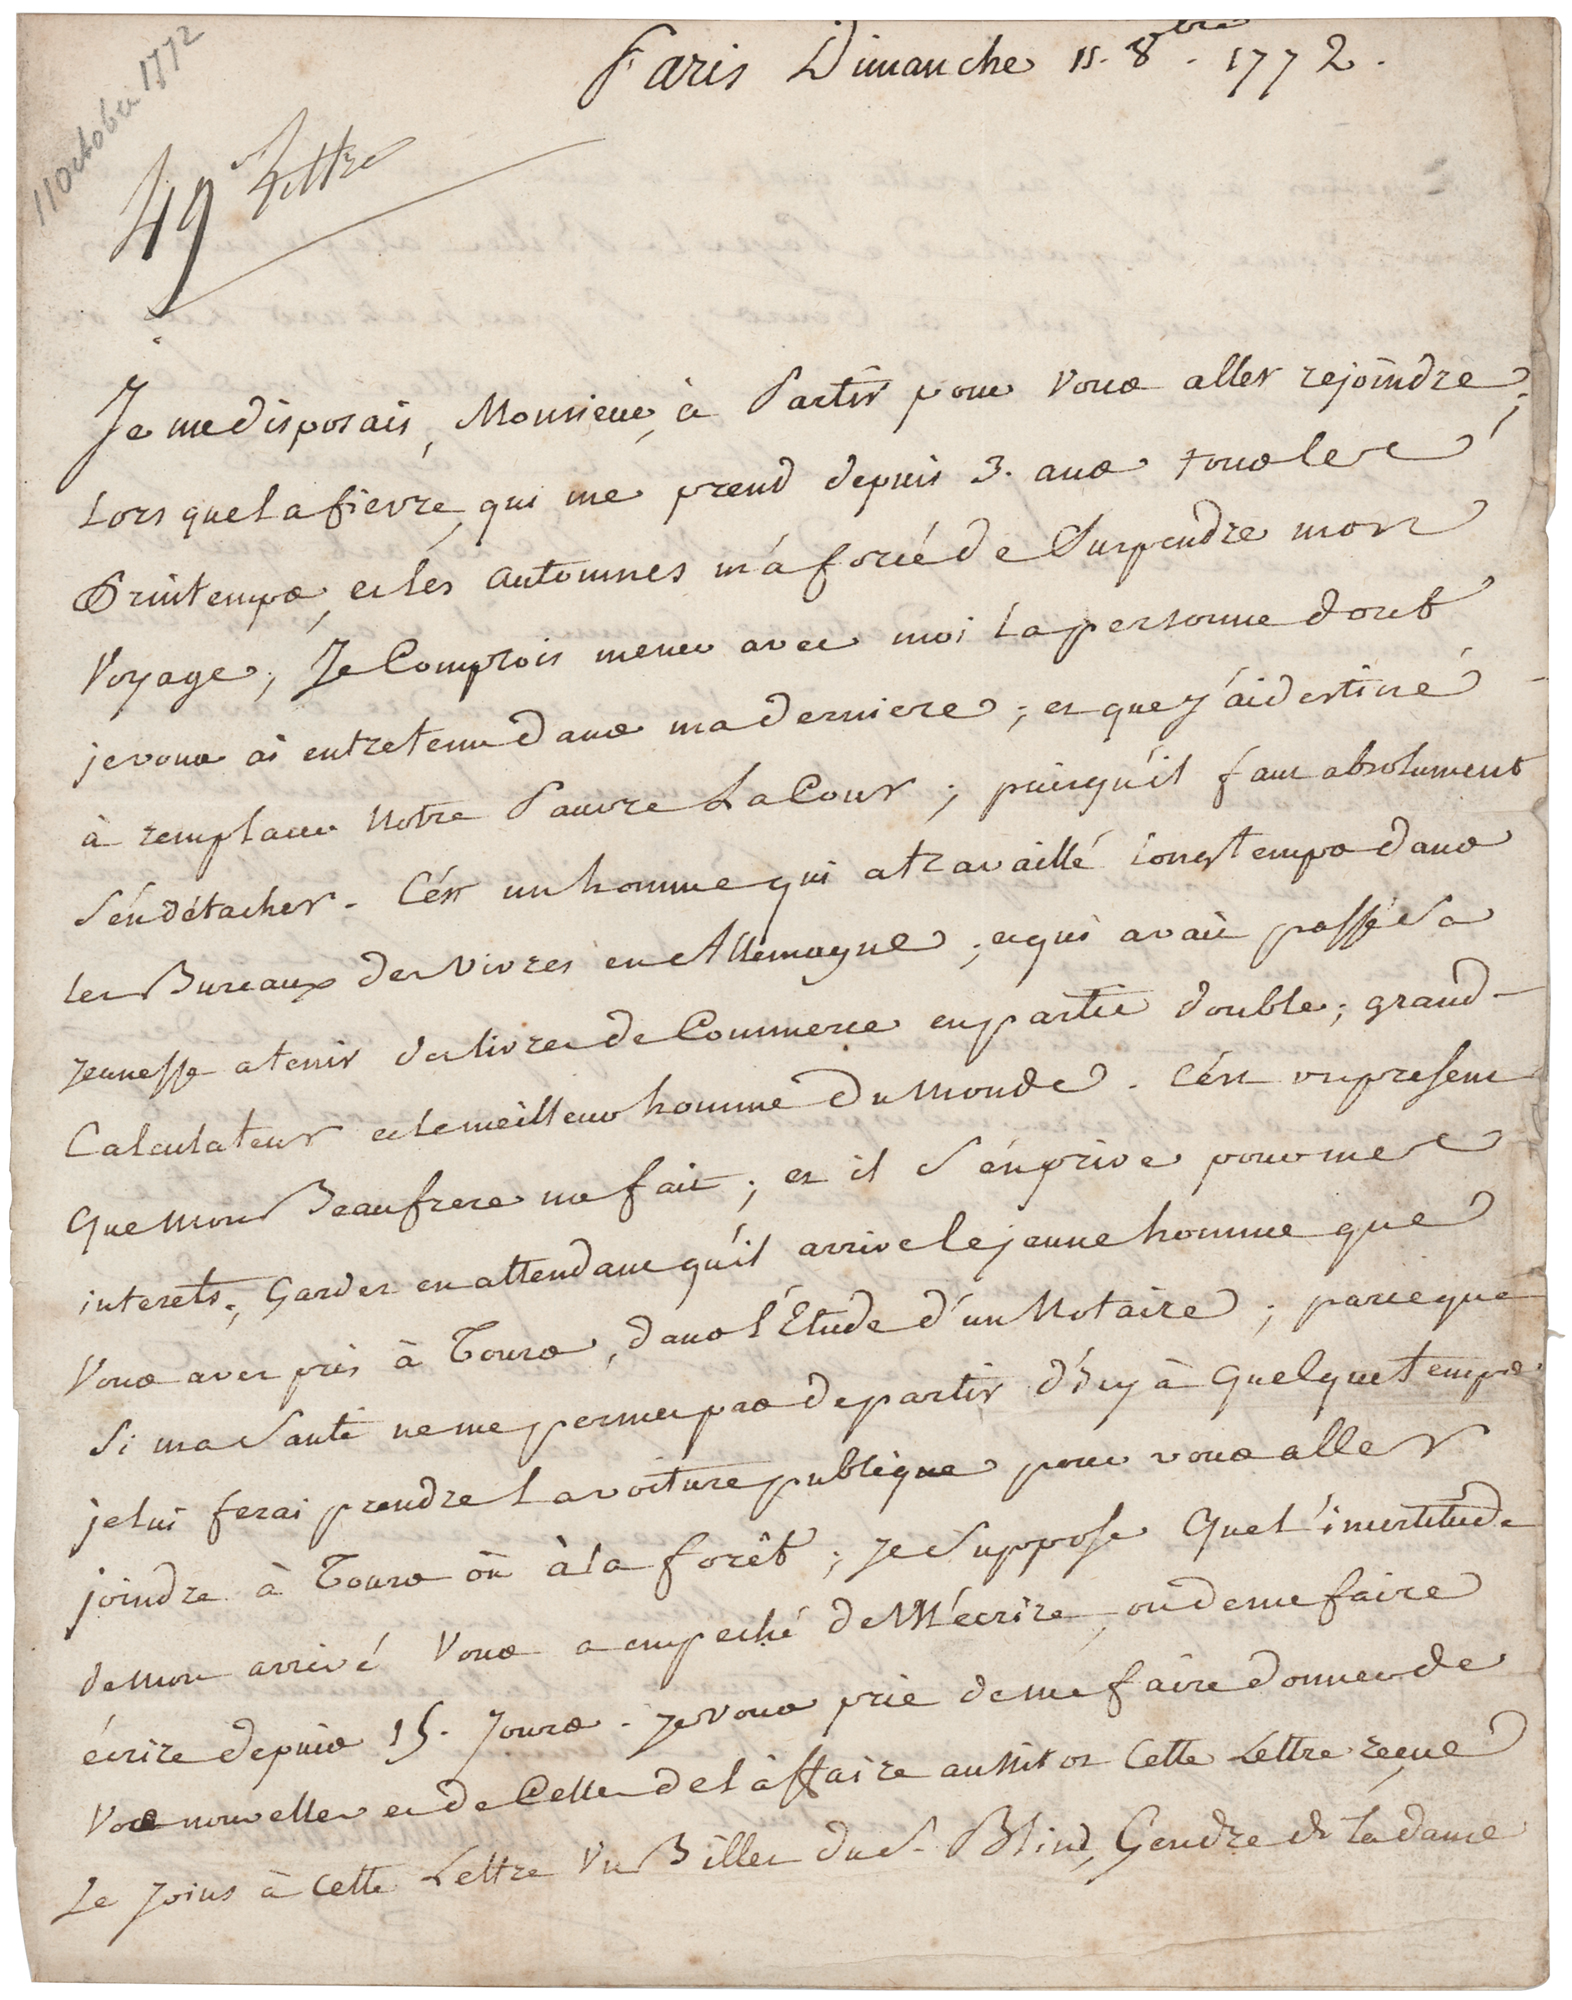 11 octobre 1772
Paris Dimanche 11. 8bre. 1772.
49e Lettre
Je me disposais, Monsieur, à Partir pour Vous aller rejoindre;
Lorsque la fievre, qui me prend depuis 3. ans tous les
Printemps, et les automnes m'a forcé de Suspendre mon
Voyage; Je Comptois mener avec moi la personne dont
je vous ai entretenu dans ma derniere; et que j'ai destiné
à remplacer Notre Pauvre LaCour; puisqu'il faut absolument
S'én détacher. C'ést un homme qui a travaillé Longtemps dans
les Bureaux des vivres en Allemagne; et qui avait passé Sa
Jeunesse a tenir des livres de Commerce en partie double; grand
Calculateur et le meilleur homme du Monde. C'ést un present
Que Mon Beaufrere me fait; et il S'én prive pour mes
interets; Garder en attendant qu'il arrive le jeune homme que
Vous avez pris à Tours, dans l'Etude d'un Notaire; parceque
Si ma Santé ne me permet pas de partir d'Icy à Quelque temps
je lui ferai prendre La voiture publique pour vous aller
joindre à Tours où à la forêt; Je Suppose Que L'incertitude
de Mon arrivé Vous a empeché de M'écrire, ou de me faire
écrire depuis 15. Jours. Je vous prie de me faire donner de
Vos nouvelles et de Celles de L'affaire aussitot Cette Lettre reçue
Je Joins à Cette Lettre Un Billet du S. Blind, Gendre de la dame